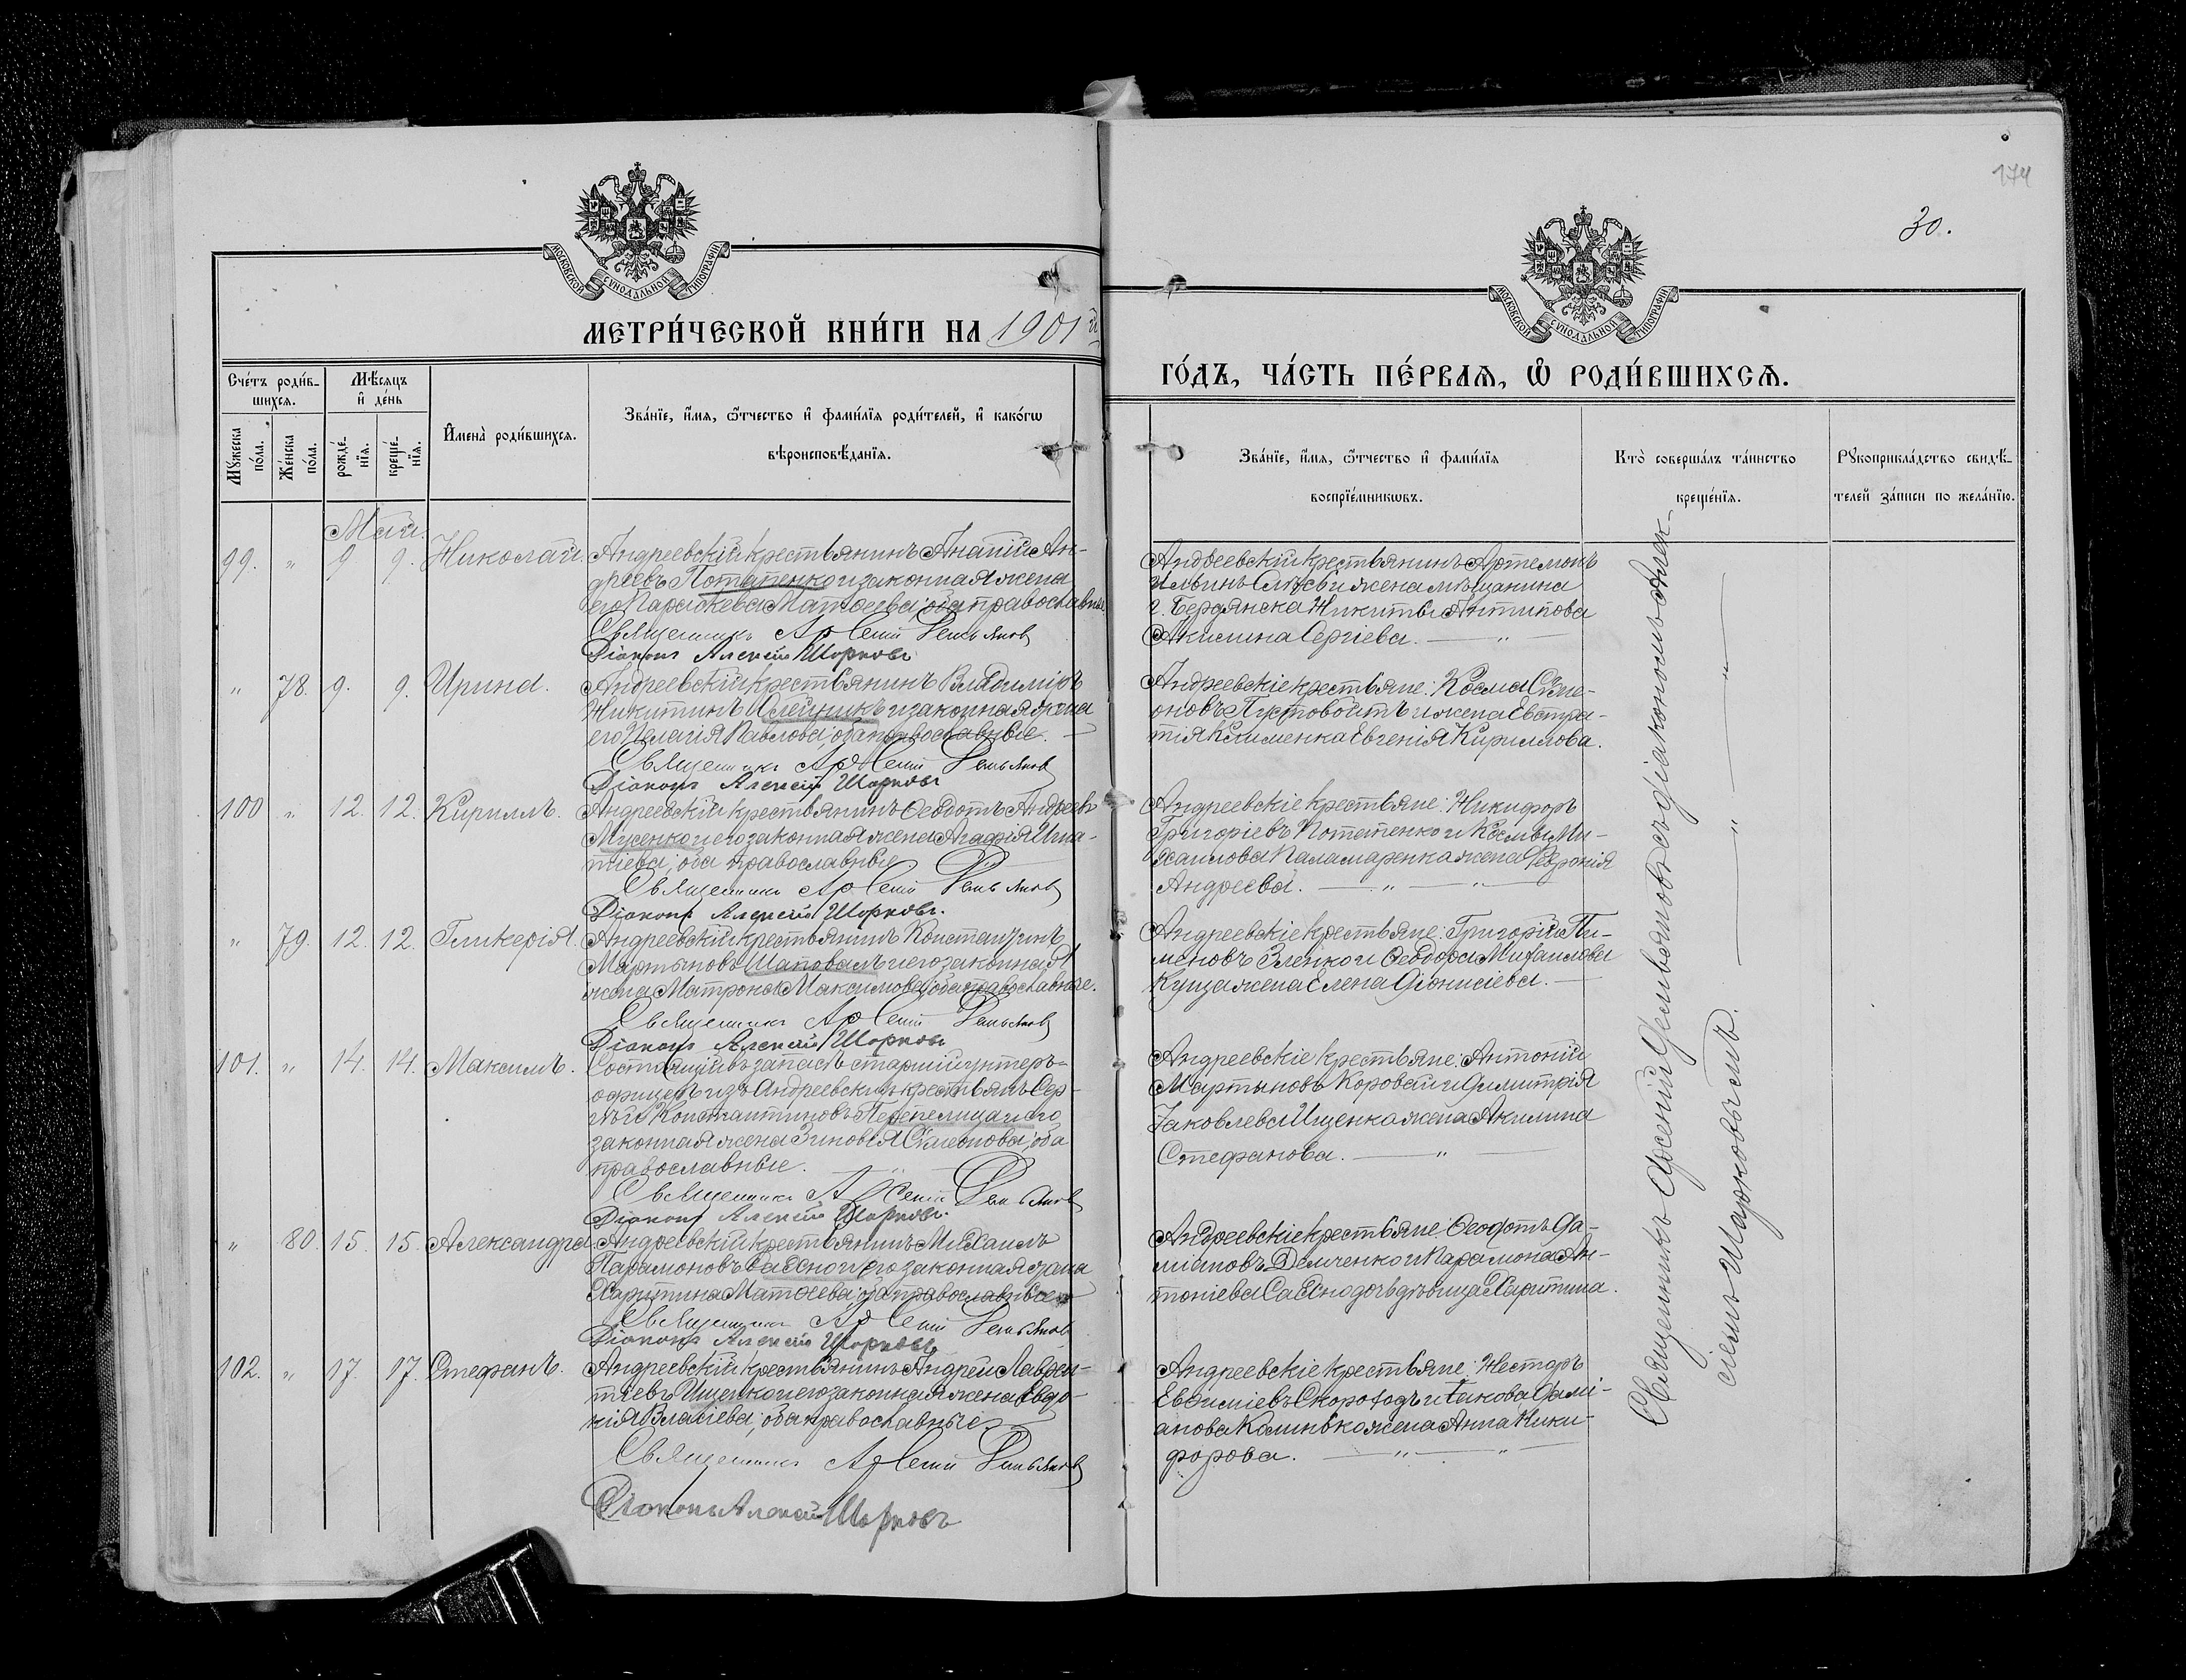 174
30.
МОСКОВСКОЙ СѴНОДАЛЬНОЙ ТИПОГРАФІИ
МОСКОВСКОЙ СѴНОДАЛЬНОЙ ТИПОГРАФІИ
МЕТРИ́ЧЕСКОЙ КНИ́ГИ НА 1901й
ГО́ДЪ, ЧА́СТЬ ПЕ́РВАЯ, Ѡ РОДИ́ВШИХСЯ.
Сче́тъ роди́в-
шихся.
Мꙋ́жеска
по́ла.
Же́нска
по́ла.
Мѣ́сяцъ
и҆ де́нь
рожде́-
нїя.
креще́-
нїя.
И҆мена̀ роди́вшихся.
Зва́нїе, и҆́мя, ѻ҆́тчество и҆ фами́лїя роди́телей, и҆ како́гѡ
вѣроисповѣ́данїя.
Зва́нїе, и҆́мя, ѻ҆́тчество и҆ фами́лїя
воспрїе́мникѡвъ.
Кто̀ соверша́лъ та́инство
креще́нїя.
Рꙋкоприкла́дство свидѣ́-
телей за́писи по жела́нїю.
Май.
99. " 9 9. Николай. Андреевскій крестьянинъ Ананій Ан-
дреевъ Потапенко и законная жена
его Параскева Матѳеева, оба православные
Священникъ Арсеній Демьянов
Діаконъ Алексій Шарковъ
Андреевскій крестьянинъ Артемонъ
Ильинъ и жена мѣщанина
г. Бердянска Никиты Антипова
Акилина Сергіева. — " —
" 78. 9. 9. Ирина. Андреевскій крестьянинъ Владиміръ
Никитинъ Олейникъ и законная жена
его Пелагія Павлова, оба православные. —
Священникъ Арсеній Демьянов
Діаконъ Алексій Шарковъ
Андреевскіе крестьяне: Косма Симе-
оновъ Пустовойтъ и жена Евстра-
тія Клименка Евгенія Кириллова.
100 " 12. 12. Кириллъ. Андреевскій крестьянинъ Ѳеодотъ Андреевъ
Мусенко и его законная жена Агафія Игна-
тіева, оба православные
Священникъ Арсеній Демьянов
Діаконъ Алексій Шарковъ.
Андреевскіе крестьяне: Никифоръ
Григоріевъ Потапенко и Космы Ми-
хаилова Паламаренка жена Феѵронія
Андреева. — " — " —
" 79. 12. 12. Гликерія. Андреевскій крестьянинъ Константинъ
Мартыновъ Шаповалъ и его законная
жена Матрона Максимова, оба православные.
Священникъ Арсеній Демьянов
Діаконъ Алексій Шарковъ
Андреевскіе крестьяне: Григорій Пи-
меновъ Зленко и Ѳеодора Михаилова
Куща жена Елена Діонисіева. —
101. " 14. 14. Максимъ. Состоящій въ запасѣ старшій унтеръ-
офицеръ изъ Андреевскихъ крестьянъ Сер-
гѣй Константиновъ Перепелица и его
законная жена Зиновія Симеонова, оба
православные. — " —
Священникъ Арсеній Демьянов
Діаконъ Алексій Шарковъ.
Андреевскіе крестьяне: Антоній
Мартыновъ Коровай и Димитрія
Іаковлева Ищенка жена Акилина
Стефанова. — " —
" 80. 15. 15. Александра. Андреевскій крестьянинъ Михаилъ
Парамоновъ Сахно и его законная жена
Харитина Матѳеева, оба православные
Священникъ Арсеній Демьянов
Діаконъ Алексій Шарковъ
Андреевскіе крестьяне: Ѳеодотъ Да-
міановъ Демченко и Парамона Ан-
тоніева Сахно дочь дѣвица Харитина.
102. " 17. 17. Стефанъ. Андреевскій крестьянинъ Андрей Лаврен-
тіевъ Ищенко и его законная жена Евдо-
кія Власіева, оба православные.
Священникъ Арсеній Демьянов
Діаконъ Алексій Шарковъ
Андреевскіе крестьяне: Несторъ
Евѳиміевъ Скороходъ и Іакова Дамі-
анова Калинька жена Анна Ники-
форова. — " — " —
Священникъ Арсеній Демьяновъ съ діакономъ Алек-
сіемъ Шарковымъ. — " — " —